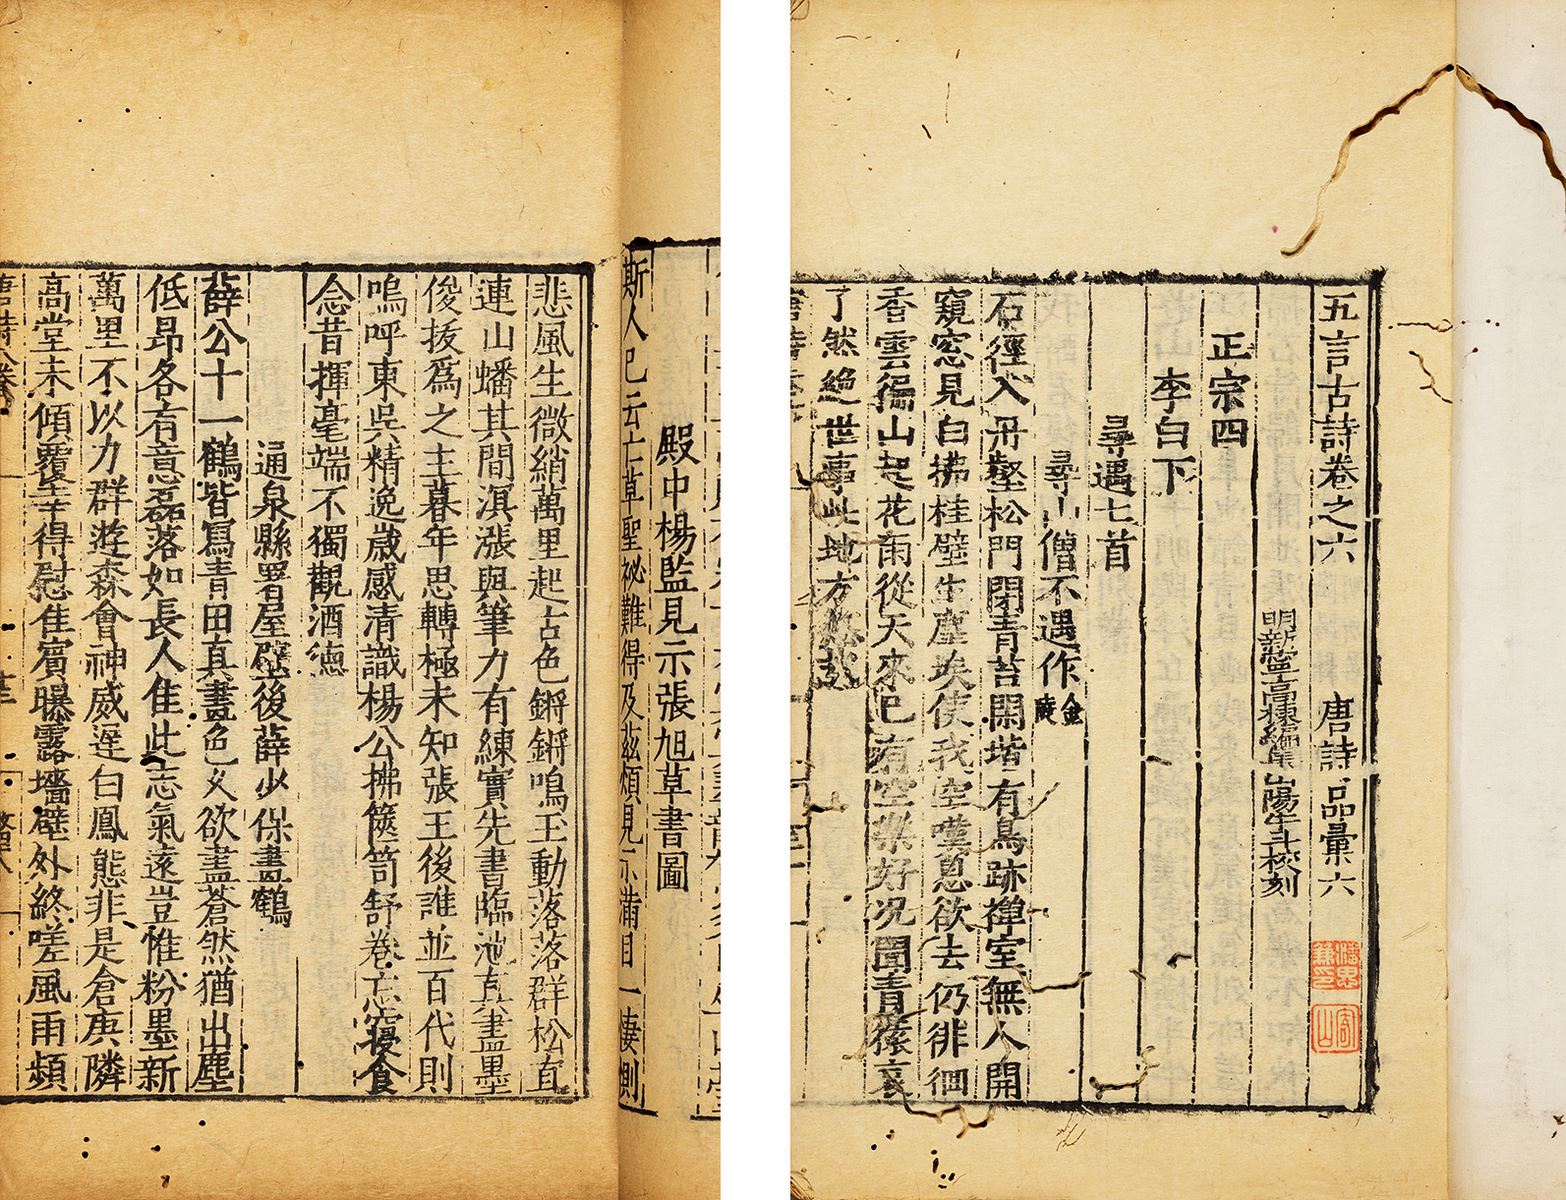 五言古詩卷之六 唐詩品彙六
明新寧高棅編集 山陽牛斗校刻
正宗四
李白下
尋遇七首
尋山僧不遇作 金陵
石徑入丹壑松門閉青苔閑堦有鳥跡禪室無人開
窺窓見白拂挂壁生塵埃使我空嘆息欲去仍徘徊
香雲徧山起花雨從天來已有空樂好况聞青猿哀
了然絶世事此地方悠哉
殿中楊監見示張旭草書圖
斯人已云亡草聖祕難得及兹煩見示滿目一悽惻
悲風生微綃萬里起古色鏘鏘鳴玉動落落群松直
連山蟠其間溟漲與筆力有練實先書臨池真盡墨
俊拔爲之主暮年思轉極未知張王後誰並百代則
嗚呼東吳精逸歲感清識楊公拂篋笥舒卷忘寢食
念昔揮毫端不獨觀酒德
通泉縣署屋壁後薛少保畫鶴
薛公十一鶴皆寫青田真畫色久欲盡蒼然猶出塵
低昂各有意磊落如長人佳此志氣遠豈惟粉墨新
萬里不以力群遊森會神威遲白鳳態非是倉庚隣
高堂未傾覆幸得慰佳賓曝露墻壁外終嗟風雨頻